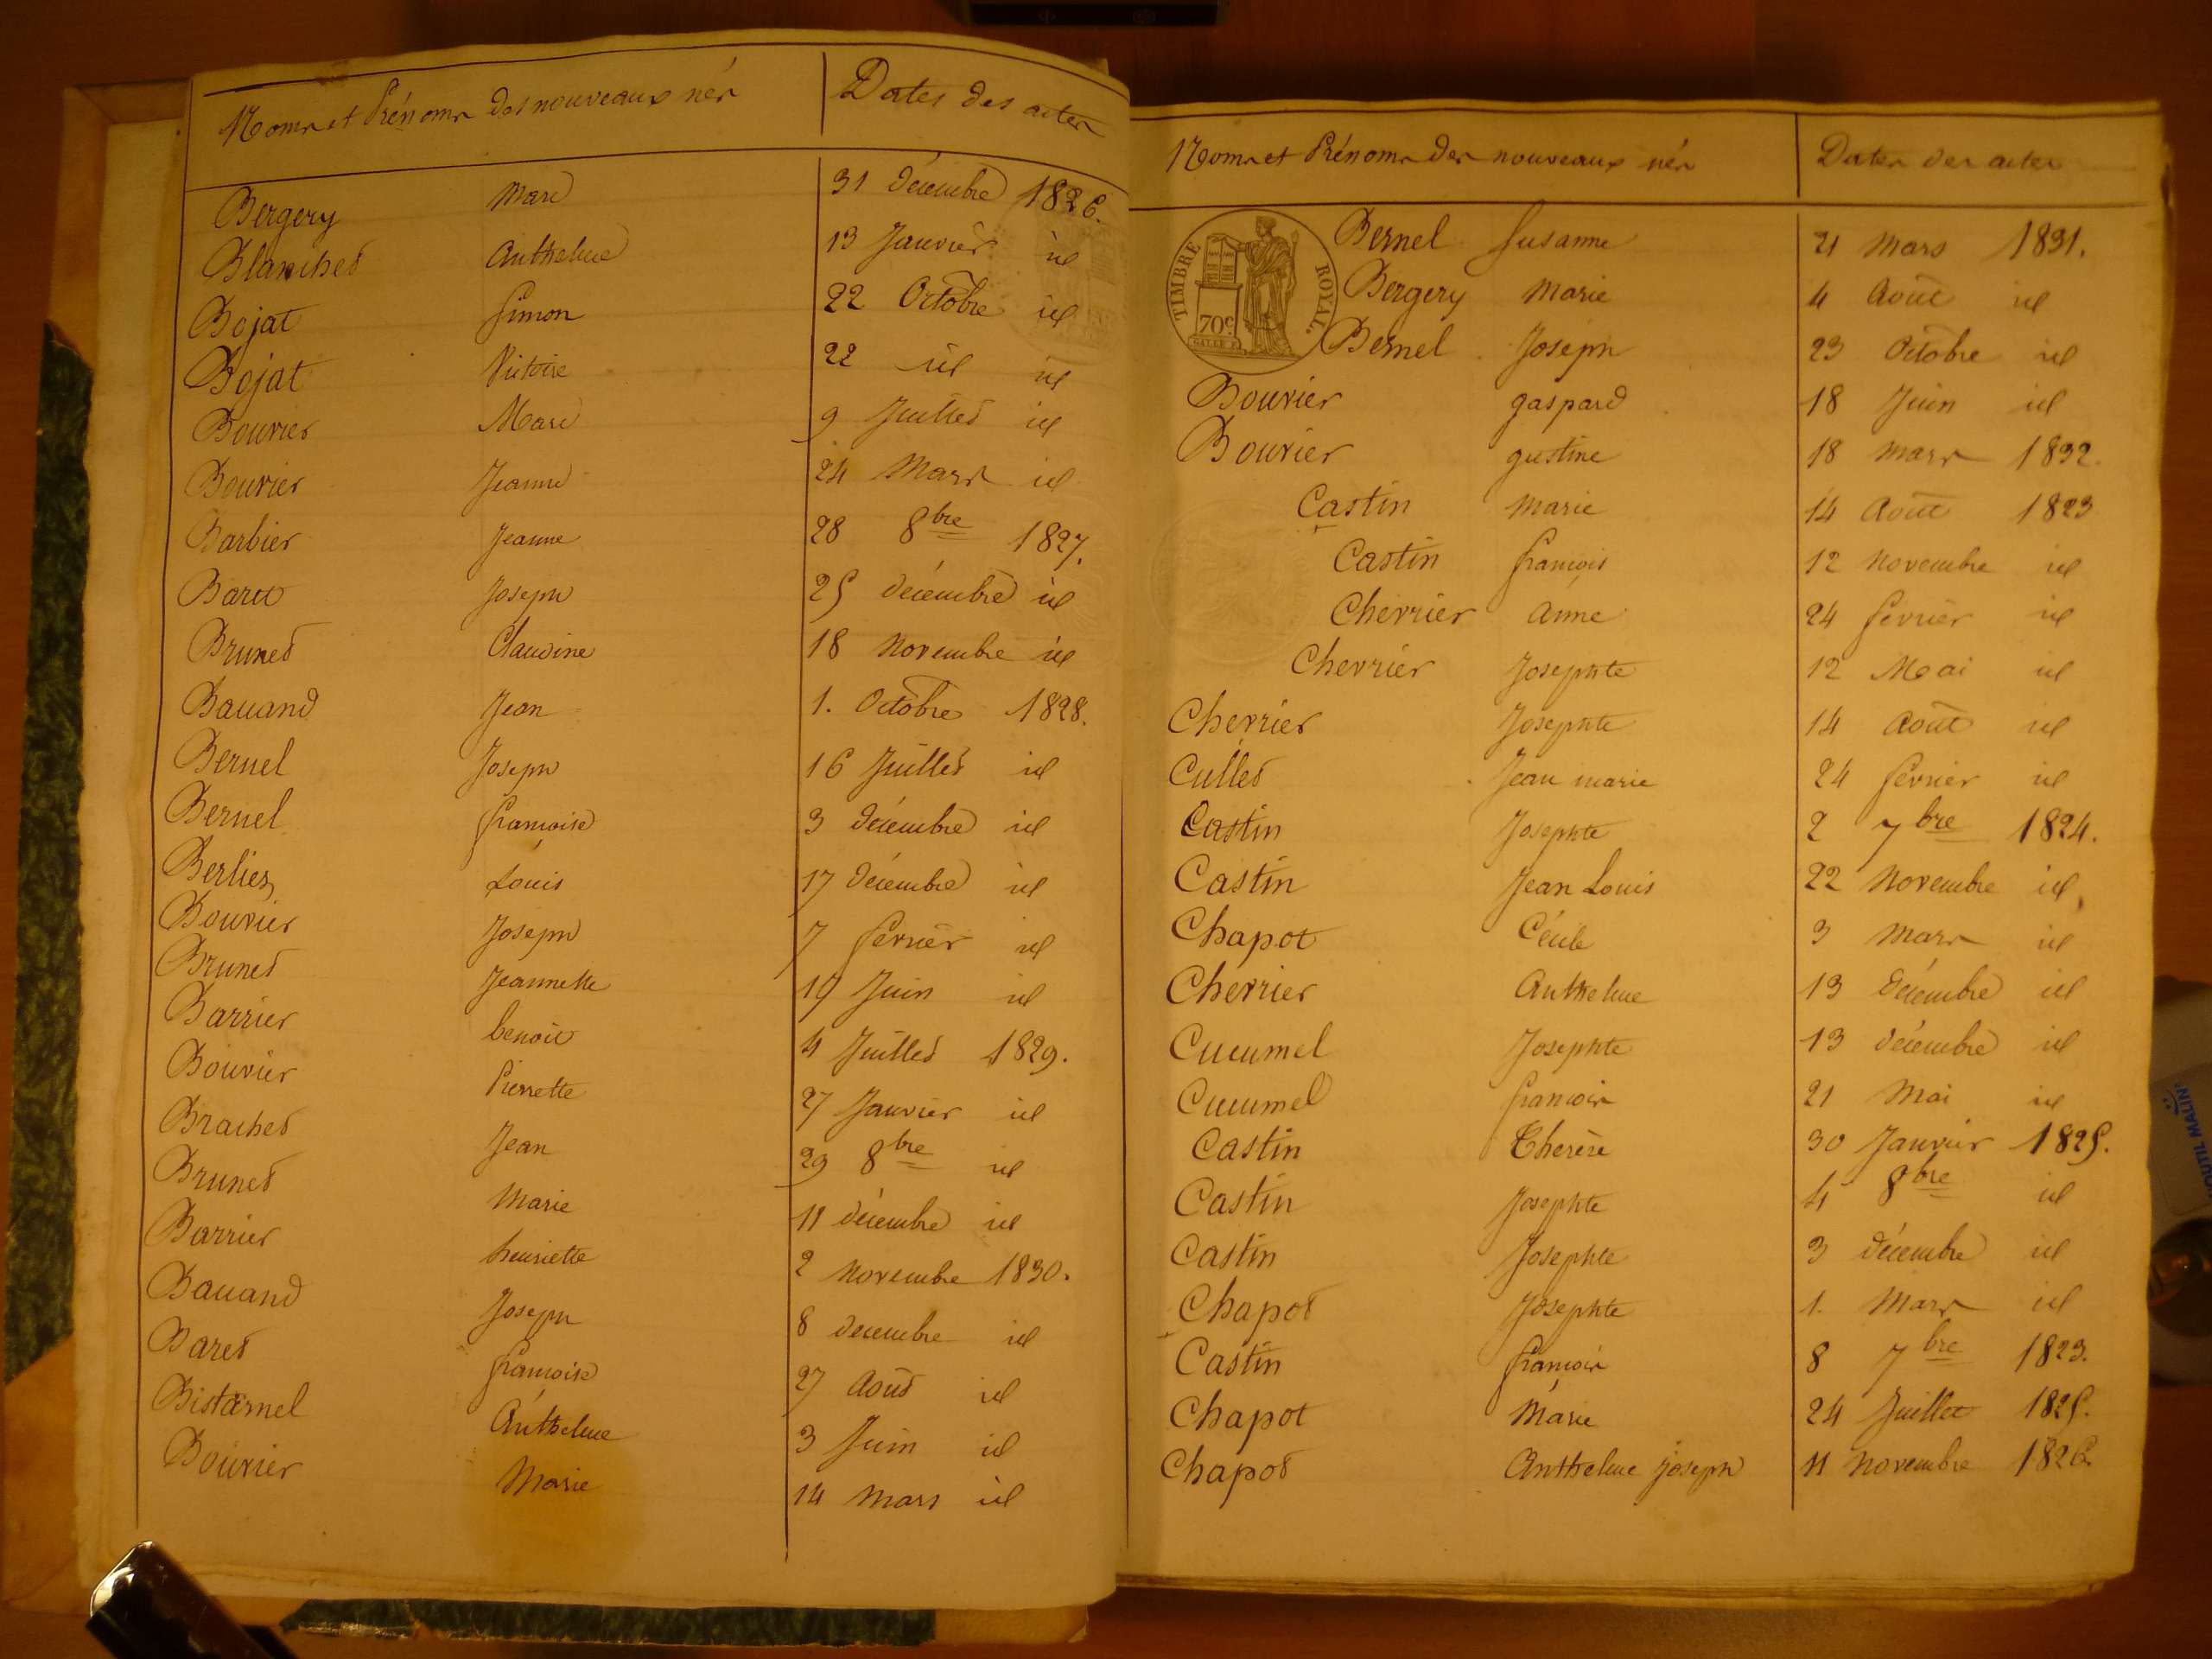 Noms et Prénoms des nouveaux nés Dates des actes
Bergery Marc 31 décembre 1826.
Blanchet Anthelme 13 Janvier id
Bojat Simon 22 Octobre id
Bojat Victoire 22 id id
Bouvier Marc 9 Juillet id
Bouvier Jeanne 24 Mars id
Barbier Jeanne 28 8bre 1827.
Baret Joseph 25 décembre id
Brunet Claudine 18 Novembre id
Bauand Jean 1. Octobre 1828.
Bernel Joseph 16 Juillet id
Bernel françoise 3 décembre id
Berlier Louis 17 décembre id
Bouvier Joseph 7 fevrier id
Brunet Jeannette 19 Juin id
Barrier benoit 4 Juillet 1829.
Bouvier Pierrette 27 Janvier id
Brachet Jean 29 8bre id
Brunet Marie 11 décembre id
Barrier henriette 2 Novembre 1830.
Bauand Joseph 8 decembre id
Baret françoise 27 Août id
Anthelme 3 Juin id
Bouvier Marie 14 Mars id
Noms et Prénoms des nouveaux nés Dates des actes
TIMBRE ROYAL.
70c
Bernel Susanne 21 Mars 1831.
Bergery Marie 4 Août id
Bernel Joseph 23 Octobre id
Bouvier gaspard 18 Juin id
Bouvier gustine 18 Mars 1832.
Castin Marie 14 Août 1823
Castin françois 12 Novembre id
Chevrier Anne 24 fevrier id
Chevrier Josephte 12 Mai id
Chevrier Josephte 14 Août id
Cullet Jean marie 24 fevrier id
Castin Josephte 2 7bre 1824.
Castin Jean Louis 22 Novembre id
Chapot Cécile 3 Mars id
Chevrier Anthelme 13 décembre id
Cucumel Josephte 13 décembre id
Cucumel françois 21 Mai id
Castin Therèse 30 Janvier 1825.
Castin Josephte 4 8bre id
Castin Josephte 3 décembre id
Chapot Josephte 1. Mars id
Castin françois 8 7bre 1823.
Chapot Marie 24 Juillet 1825.
Chapot Anthelme Joseph 11 Novembre 1826.
OUTIL MALIN